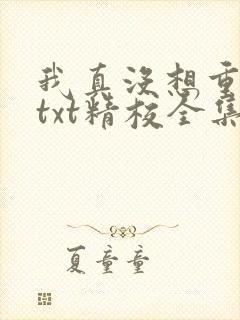 我真没想重
txt精校全集
夏童童